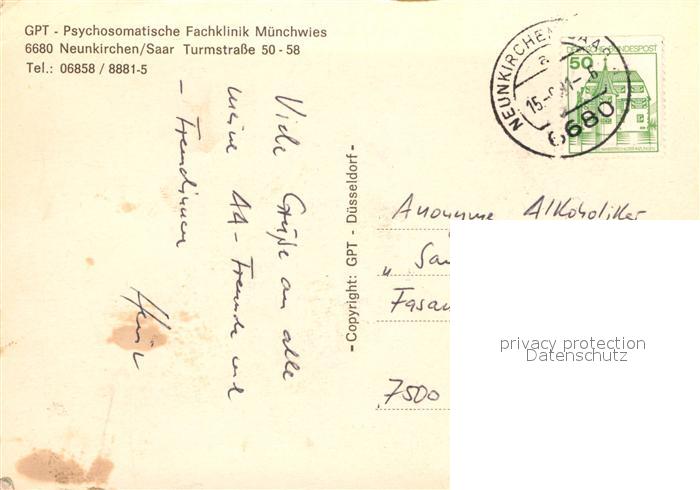 GPT - Psychosomatische Fachklinik Münchwies
6680 Neunkirchen/Saar Turmstraße 50 - 58
Tel.: 06858 / 8881-5
Viele Grüße an alle
meine AA-Freunde und
- Freundinnen
- Copyright: GPT - Düsseldorf -
NEUNKIRCHEN, SAAR
a
15.
6680
DEUTSCHE BUNDESPOST
50
Anonyme Alkoholiker
"
Fasan
7500
privacy protection
Datenschutz